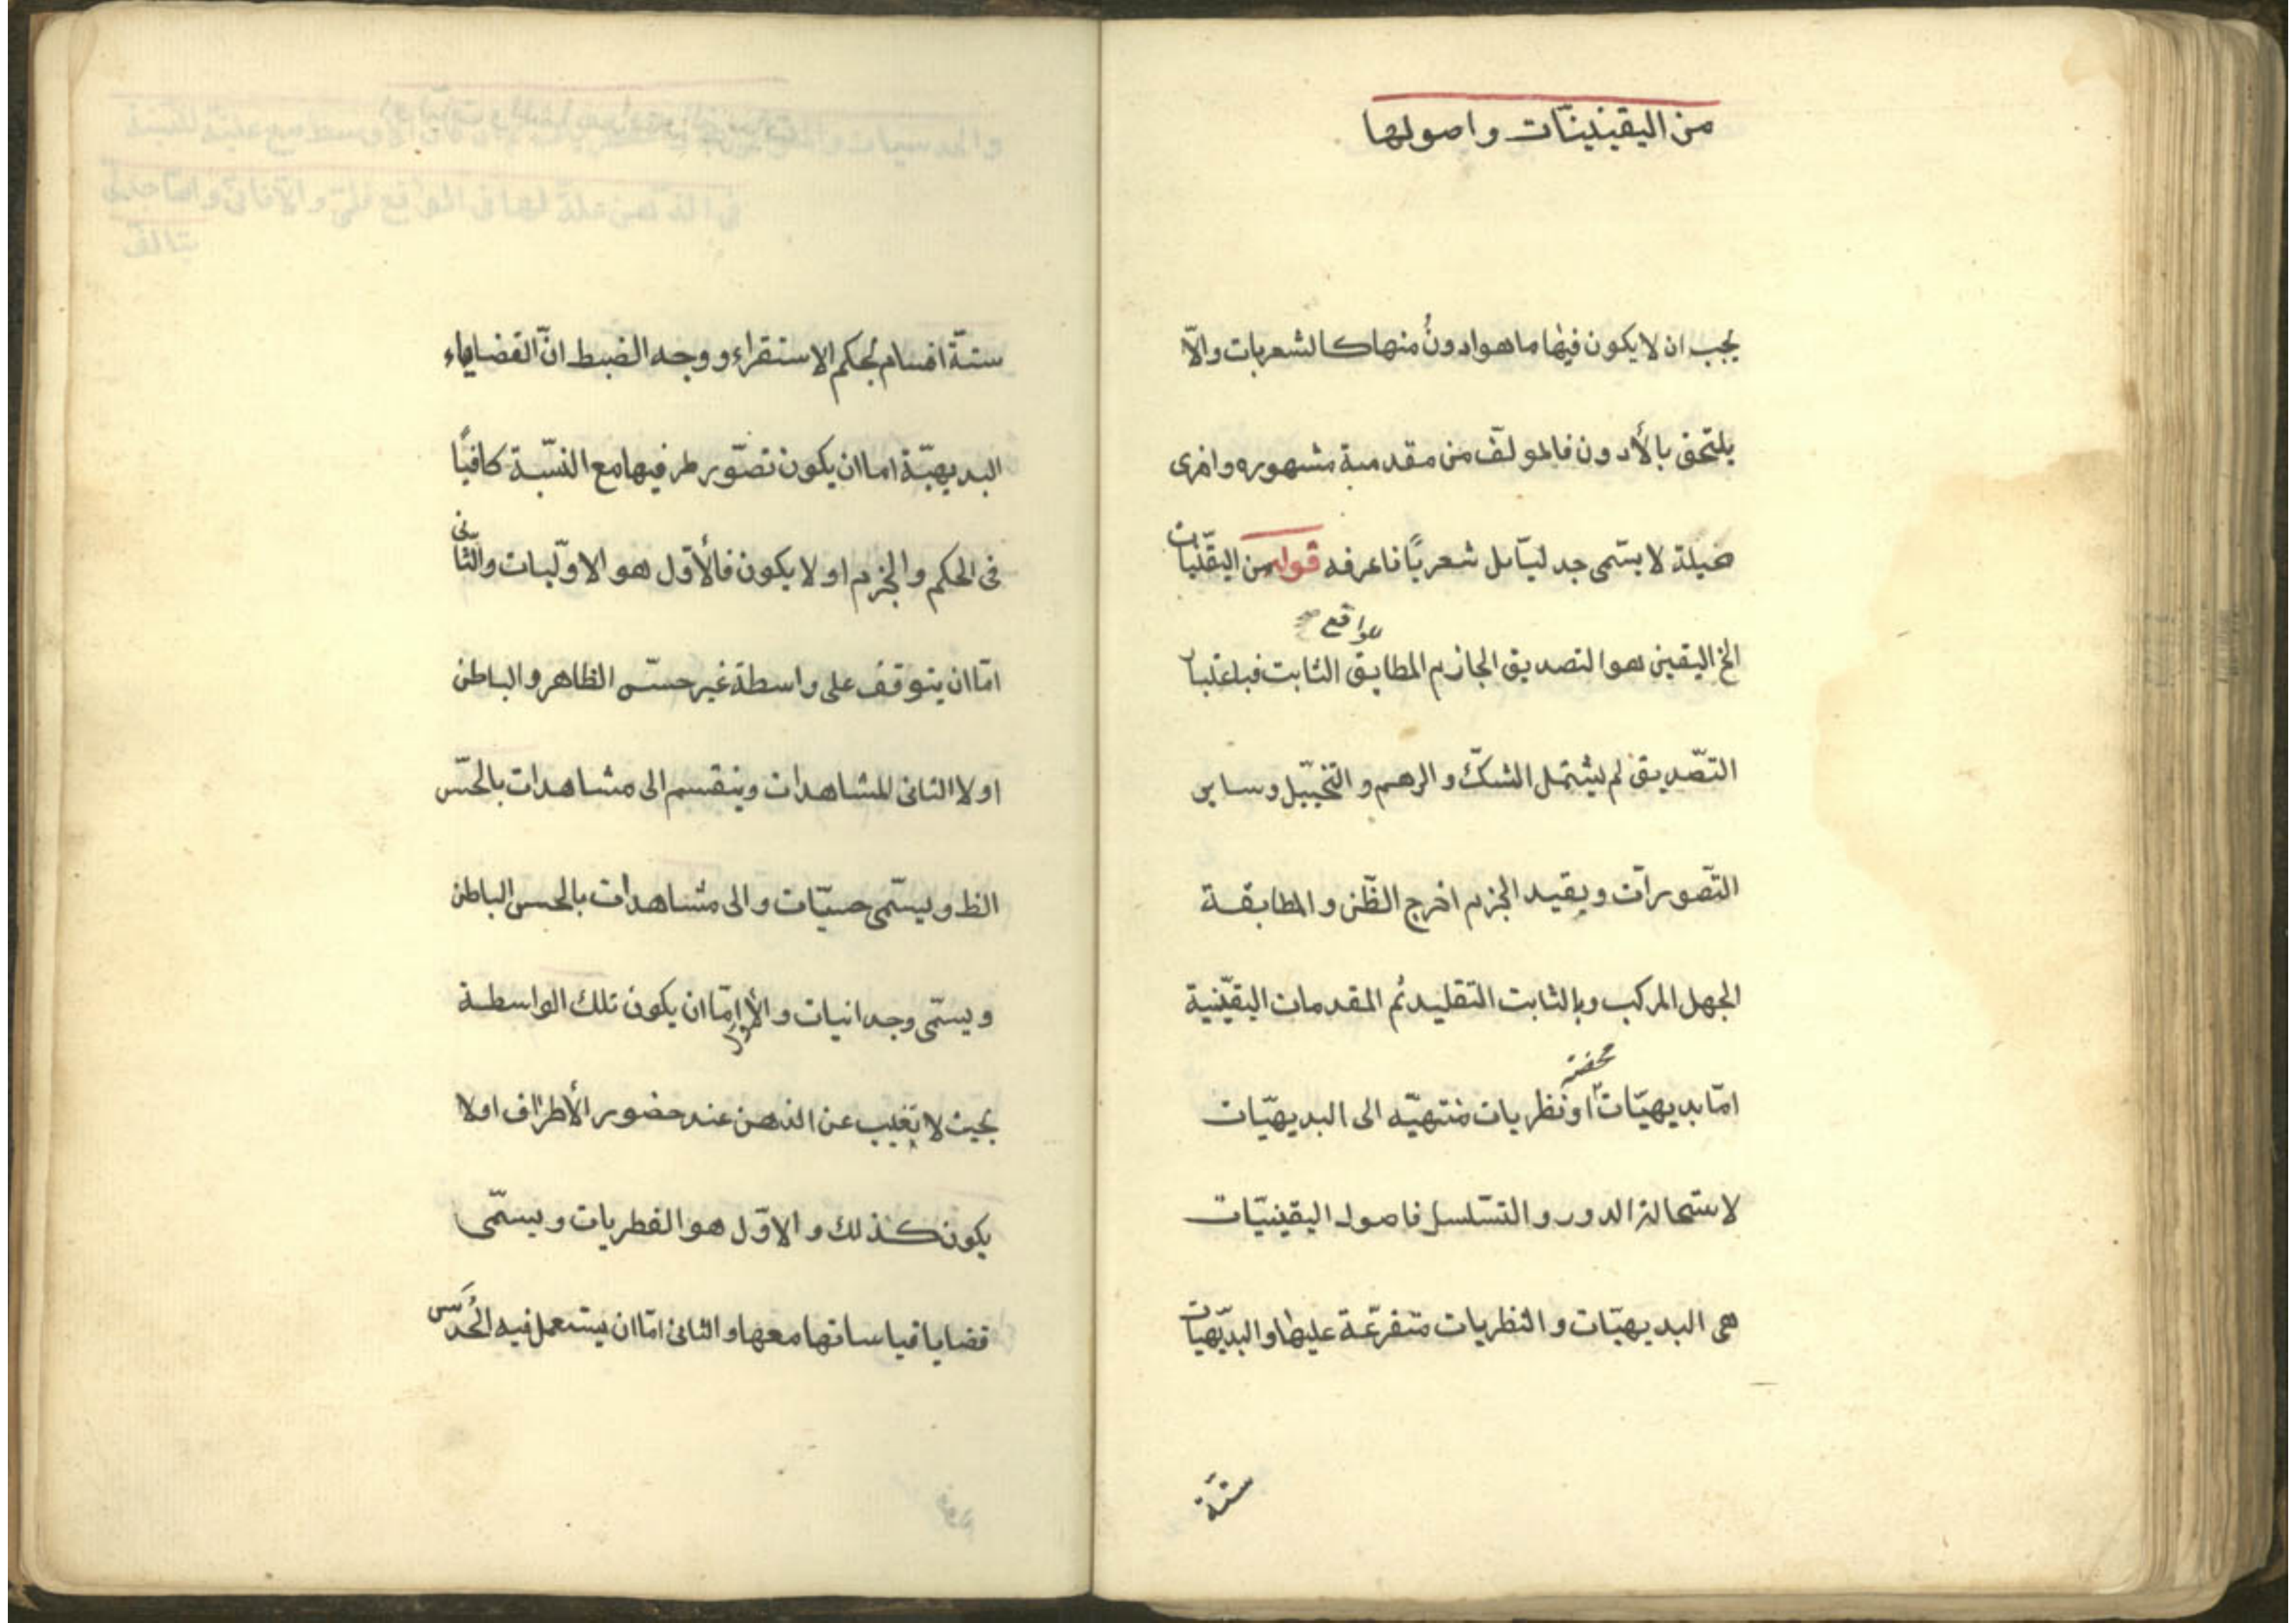 من اليقينيّات واصولها
يجب ان لا يكون فيها ما هو ادونُ منها كالشعريات والّا
يلتحق بالأدون فالمولّف من مقدمة مشهوره واخرى
مخيلة لا يسّمى جدليّا بل شعريًا فاعرفه قوله من اليقّنيات
الخ اليقين هو التصديق الجازم المطابق للواقع صح الثابت فباعتبار
التصّديق لم يشتمل الشكّ والوهم والتخيّيل وساير
التّصورات وبقيد الجزم اخرج الظّن والمطابقة
الجهل المركب وبالثابت التقليد ثم المقدمات اليقيّنية
امّا بديهيّات او نظريات منتهيّه الى البديهيّات
لاستحالة الدور والتسّلسل فاصول اليقينيّات
هى البديهيّات والنظريات متفرعّة عليها والبديّهيات
ستّة
ستّة اقسام بحكم الاستقراء ووجه الضبط انّ القضايا
البديهيّة اما ان يكون تصّور طرفيها مع النسّبة كافيًا
فى الحكم والجزم او لا يكون فالأوّل هو الاوّليات والثّانى
امّا ان يتوقف على واسطة غير حسّ الظاهر والباطن
او لا الثانى المشاهدات وينقسم الى مشاهدات بالحسّ
الظ ويسّمى حسيّات والى مشاهدات بالحس الباطن
ويسمّى وجدانيات والأول امّا ان يكون تلك الواسطة
بحيث لا تغيب عن الذهن عند حضور الأطراف او لا
يكون كذلك والاوّل هو الفطريات ويسمّى
قضايا قياساتها معها والثانى امّا ان يستعمل فيه الحُدس